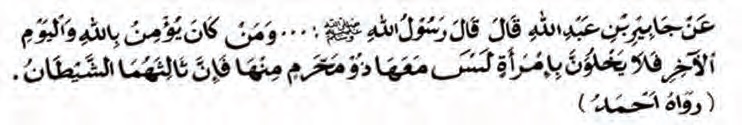 عَنْ جَابِيْرِبْنِ عَبْدِ اللهِ قَالَ قَالَ رَسُوْلُ اللهِ ﷺ : ... وَمَنْ كَانَ يُؤْمِنُ بِاللهِ وَاْليَوْمِ
اْلآخِرِ فَلَا يَخْلُوَنَّ بِامْرَأَةٍ لَيْسَ مَعَهَا ذُوْ مَحْرَمٍ مِنْهَا فَإِنَّ ثَالِثَهُمَا الشَّيْطَانُ .
( رَوَاهُ اَحْمَدُ )